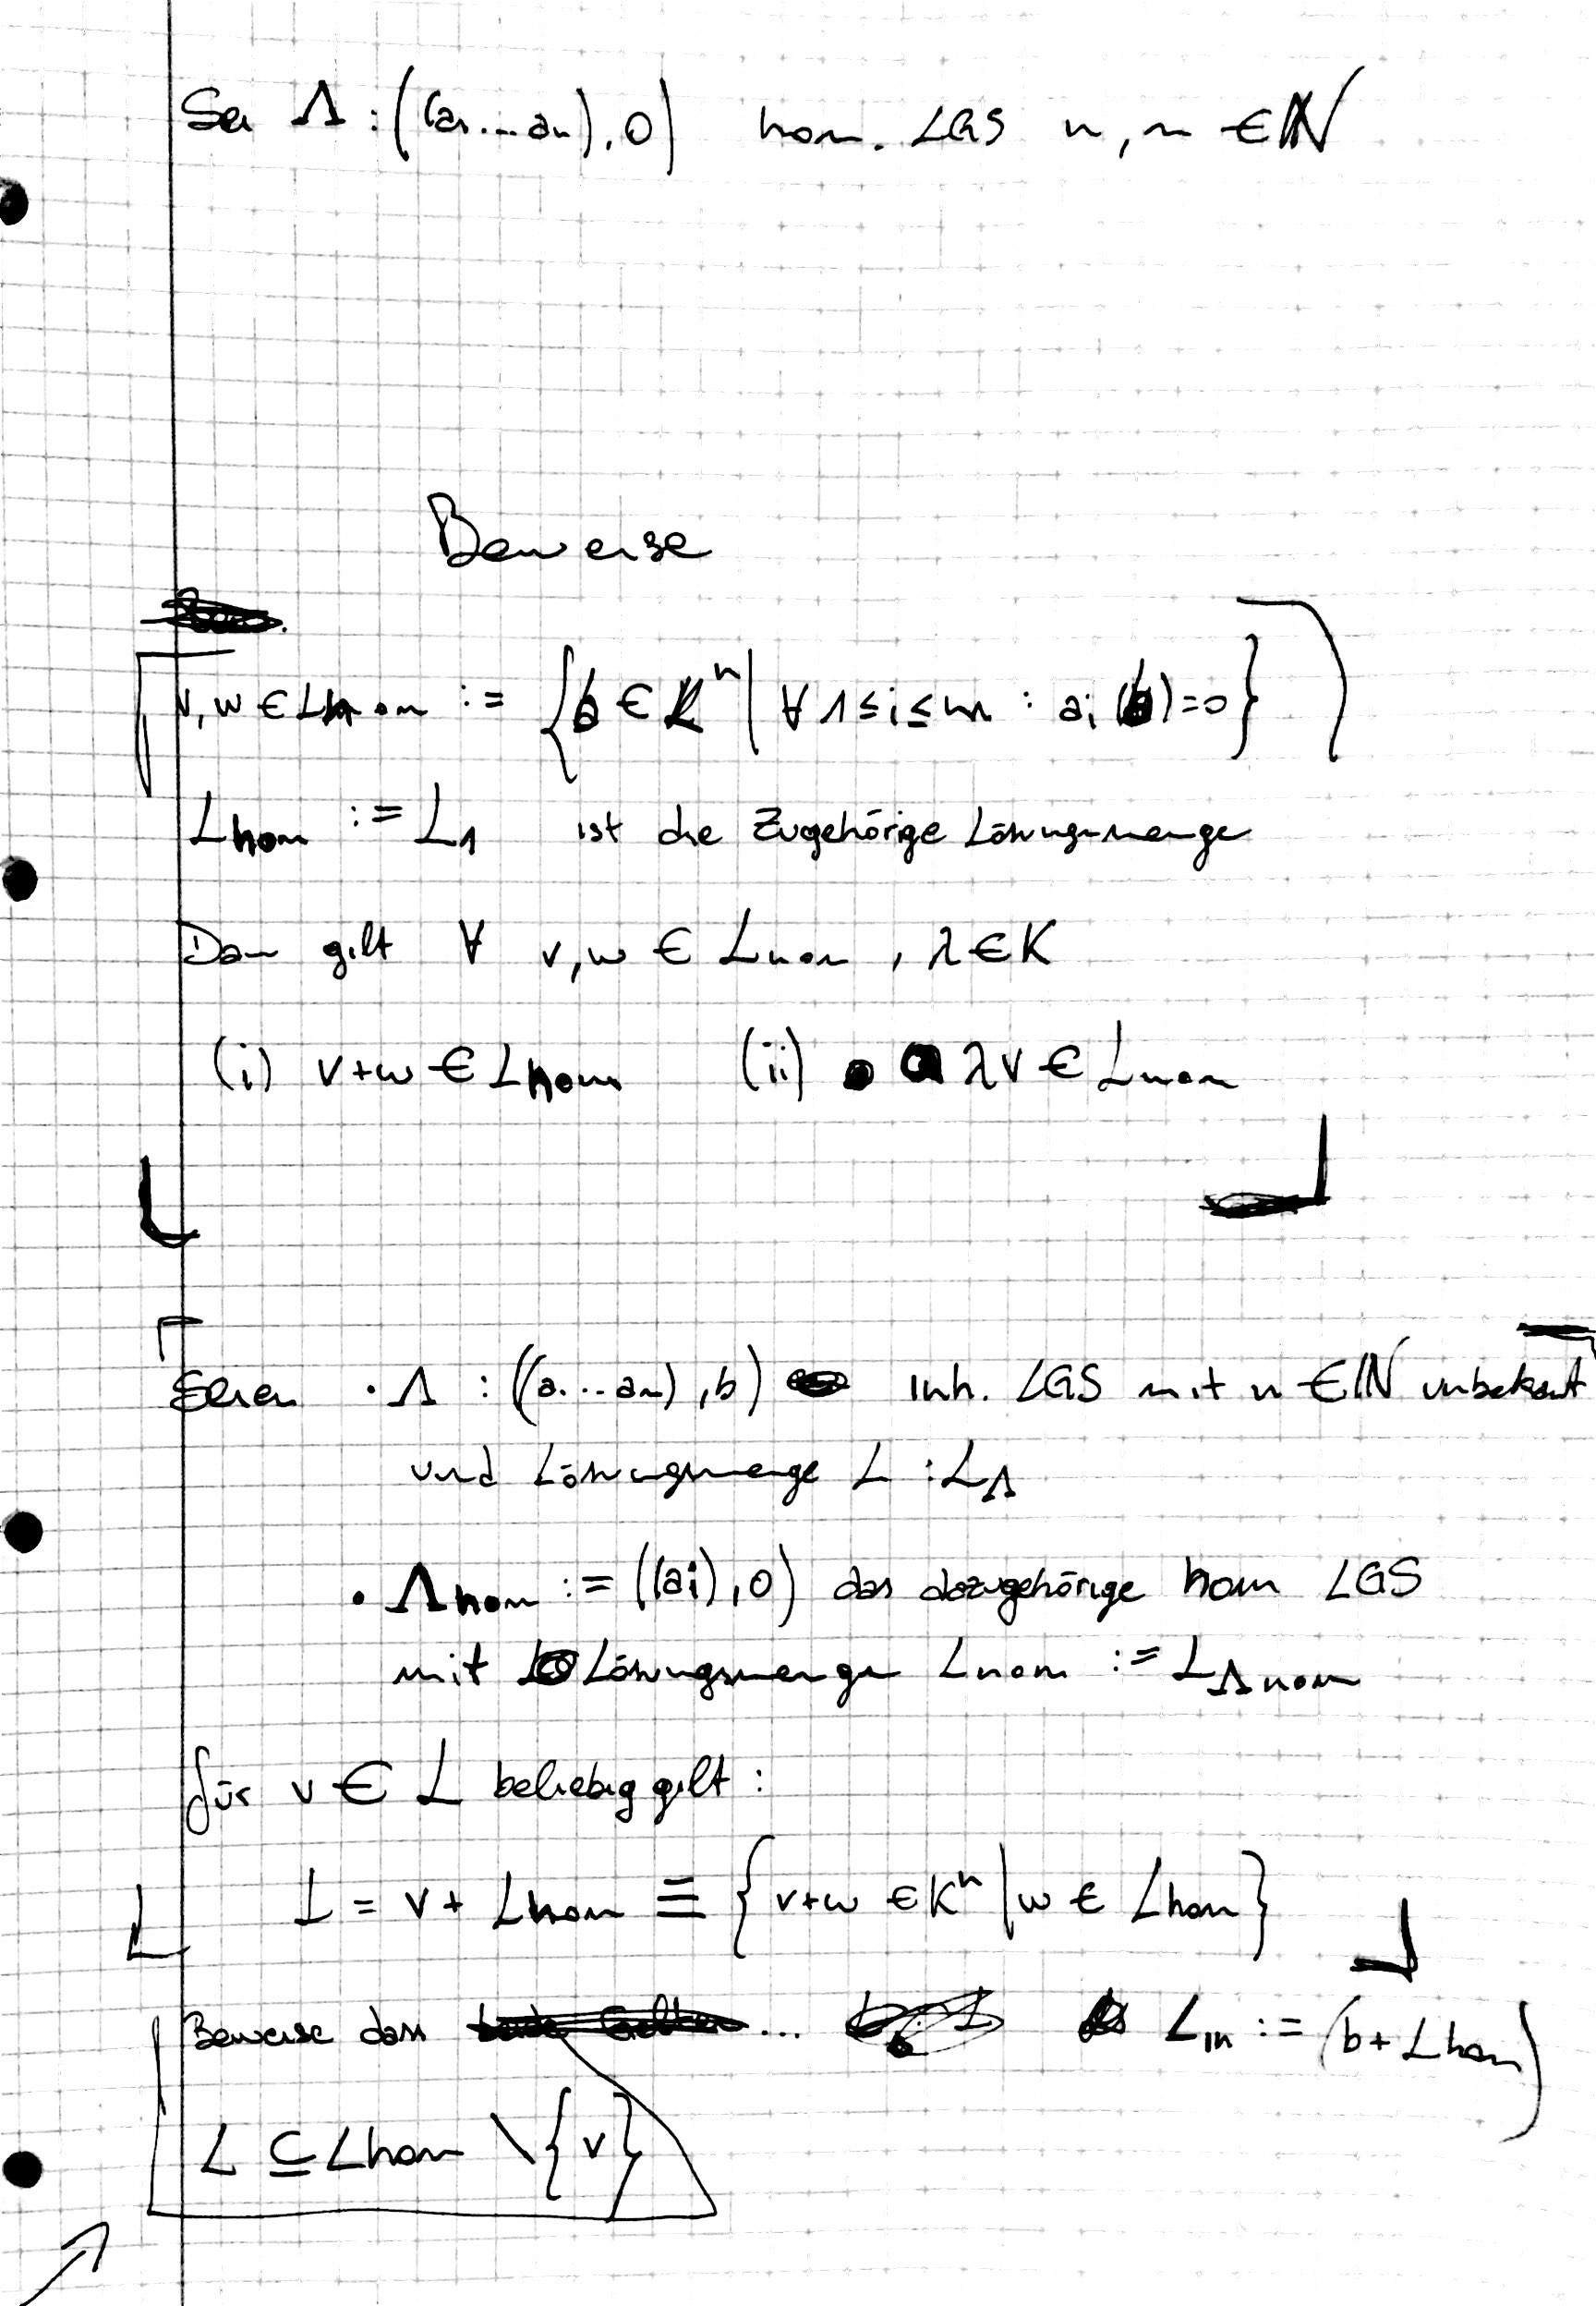 Sei Λ : ((a1...an), 0) hom. LGS n, m ∈ ℕ
Beweise
v, w ∈ Lhom := {b ∈ K^n | ∀ 1≤i≤m : ai (b)=0}
Lhom := LΛ ist die Zugehörige Lösungsmenge
Dan gilt ∀ v,w ∈ Lhom , λ∈K
(i) v+w ∈ Lhom (ii) λv ∈ Lhom
Seien · Λ : ((a...an), b) Inh. LGS mit n ∈ ℕ unbekant
und Lösungsmenge L : LΛ
· Λhom := ((ai), 0) das dazugehörige hom LGS
mit Lösungsmenge Lhom := LΛhom
für v ∈ L beliebig gilt :
L = v + Lhom ≡ {v+w ∈ K^n | w ∈ Lhom}
Beweise dass ... Lin := (b + Lhom)
L ⊆ Lhom \ {v}